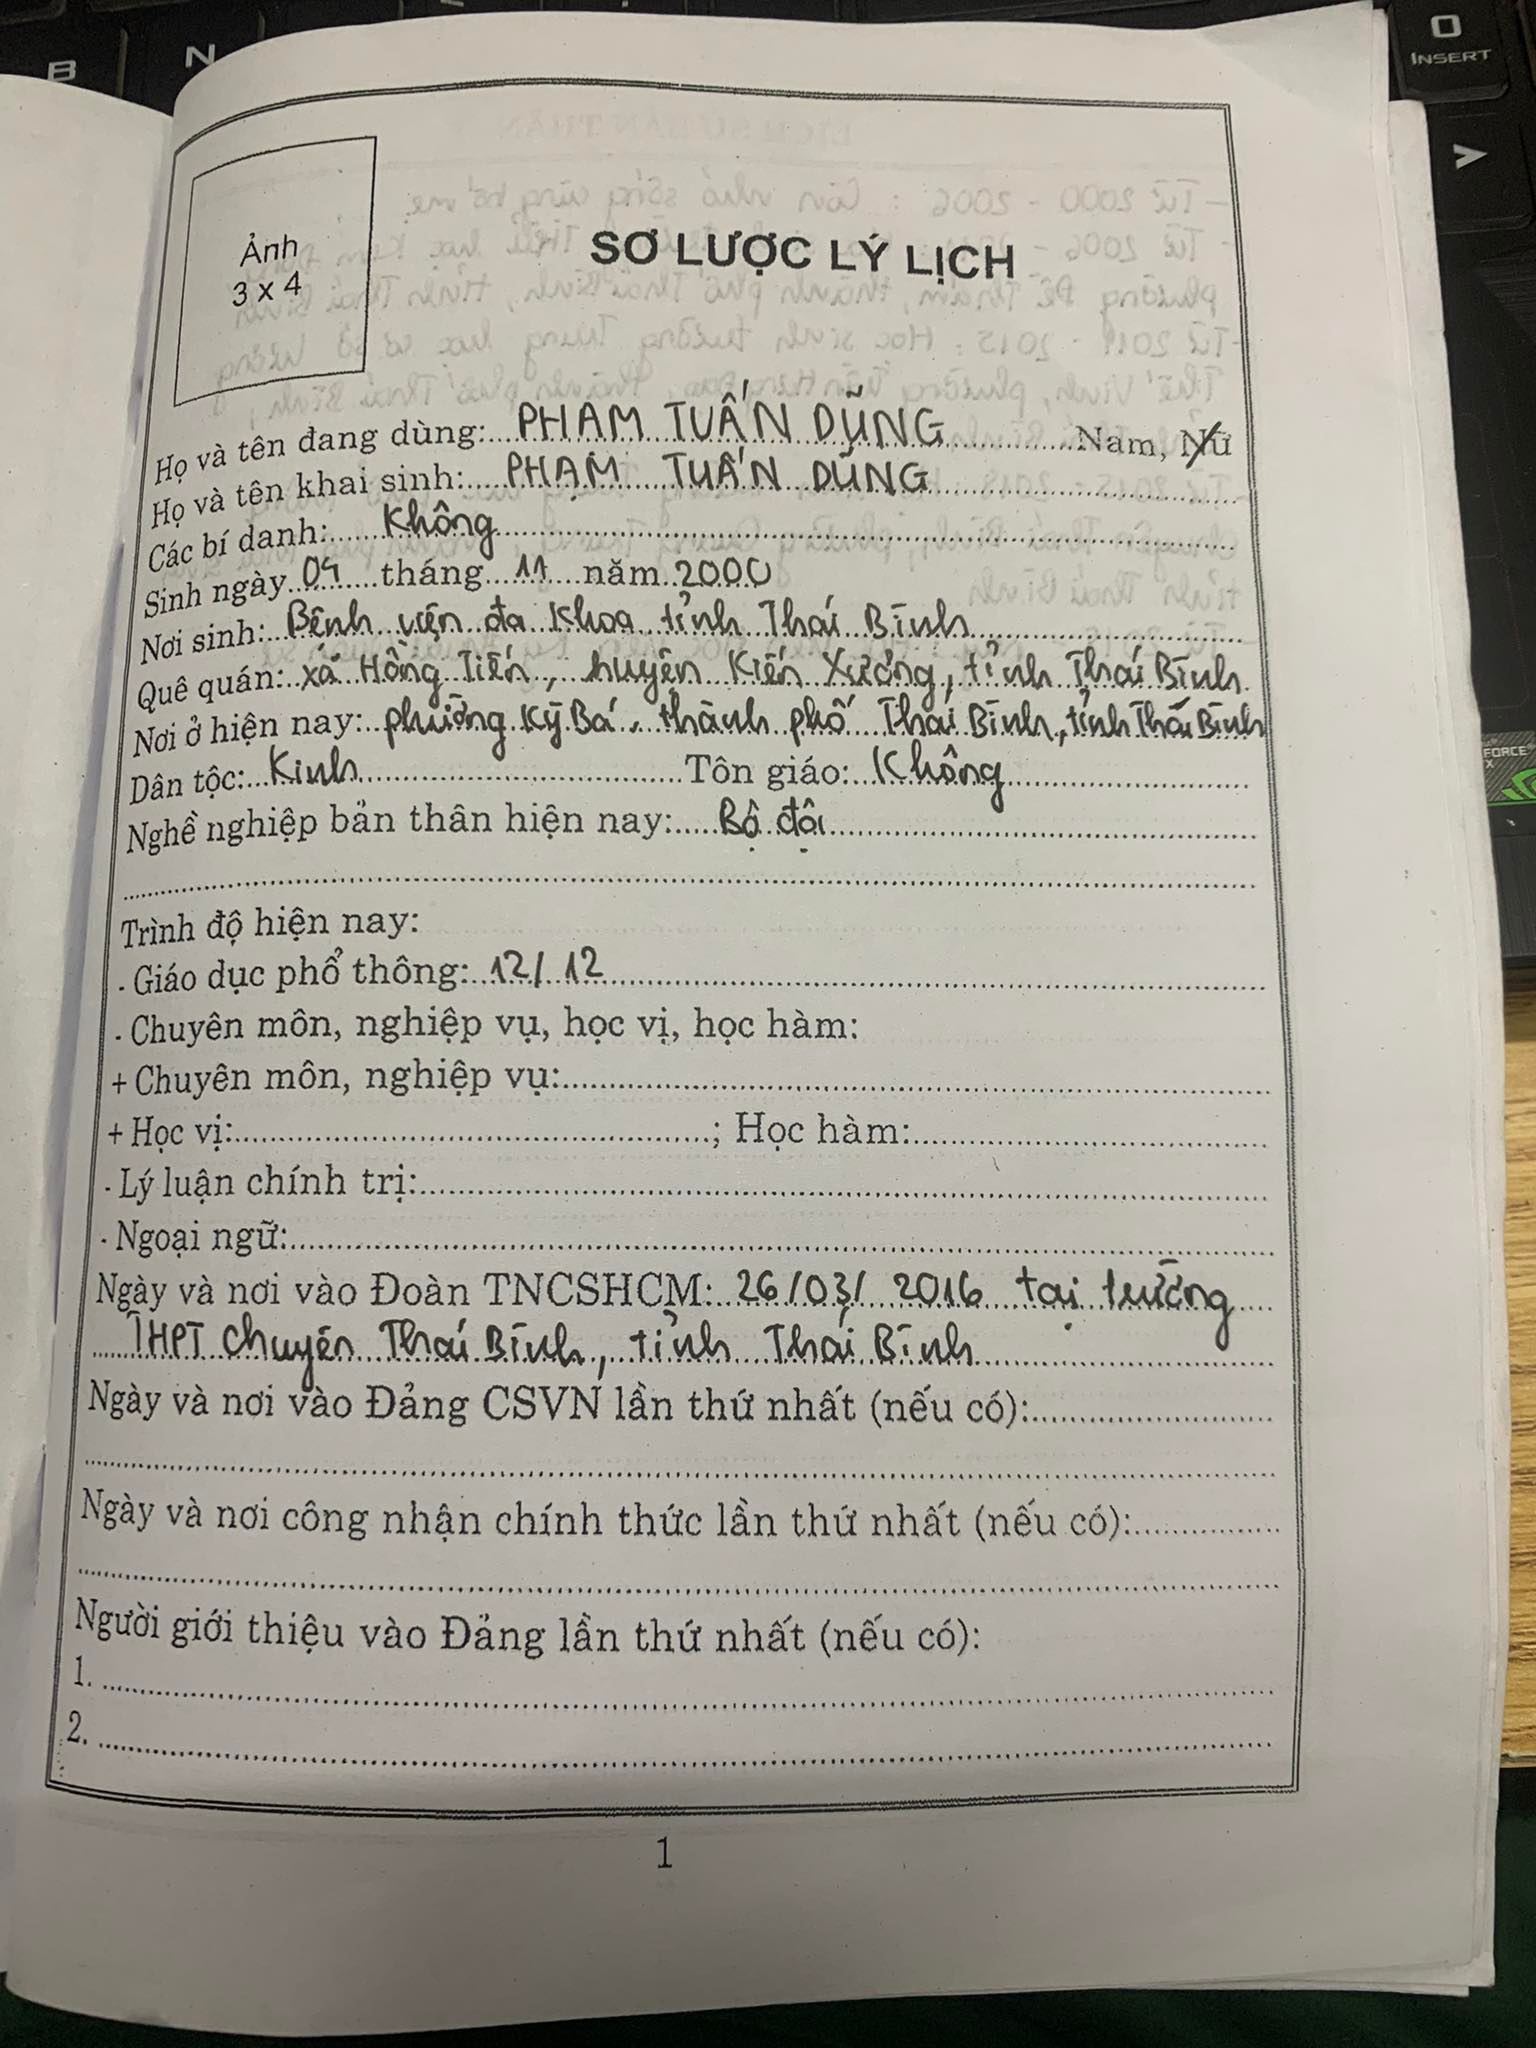 B
N
0
INSERT
>
Ảnh
3 x 4
SƠ LƯỢC LÝ LỊCH
Họ và tên đang dùng: PHẠM TUẤN DŨNG Nam, Nữ
Họ và tên khai sinh: PHẠM TUẤN DŨNG
Các bí danh: Không
Sinh ngày 04 tháng 11 năm 2000
Nơi sinh: Bệnh viện đa khoa tỉnh Thái Bình
Quê quán: xã Hồng Tiến, huyện Kiến Xương, tỉnh Thái Bình
Nơi ở hiện nay: phường Kỳ Bá, thành phố Thái Bình, tỉnh Thái Bình
Dân tộc: Kinh Tôn giáo: Không
Nghề nghiệp bản thân hiện nay: Bộ đội
Trình độ hiện nay:
- Giáo dục phổ thông: 12/12
- Chuyên môn, nghiệp vụ, học vị, học hàm:
+ Chuyên môn, nghiệp vụ:
+ Học vị: ; Học hàm:
- Lý luận chính trị:
- Ngoại ngữ:
Ngày và nơi vào Đoàn TNCSHCM: 26/03/2016 tại trường
THPT Chuyên Thái Bình, tỉnh Thái Bình
Ngày và nơi vào Đảng CSVN lần thứ nhất (nếu có):
Ngày và nơi công nhận chính thức lần thứ nhất (nếu có):
Người giới thiệu vào Đảng lần thứ nhất (nếu có):
1.
2.
1